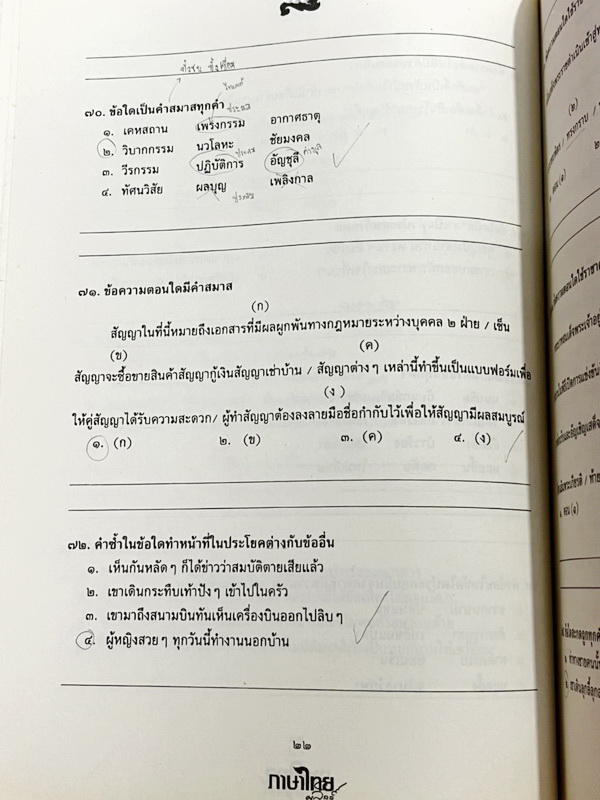 ๗๐. ข้อใดเป็นคำสมาสทุกคำ
๑. เคหสถาน เพรงกรรม อากาศธาตุ
๒. วิบากกรรม นวโลหะ ชัยมงคล
๓. วีรกรรม ปฏิบัติการ อัญชุลี
๔. ทัศนวิสัย ผลบุญ เพลิงกาล
๗๑. ข้อความตอนใดมีคำสมาส
(ก)
สัญญาในที่นี้หมายถึงเอกสารที่มีผลผูกพันทางกฎหมายระหว่างบุคคล ๒ ฝ่าย / เช็น
(ข) (ค)
สัญญาจะซื้อขายสินค้าสัญญากู้เงินสัญญาเช่าบ้าน / สัญญาต่าง ๆ เหล่านี้ทำขึ้นเป็นแบบฟอร์มเพื่อ
(ง )
ให้คู่สัญญาได้รับความสะดวก/ ผู้ทำสัญญาต้องลงลายมือชื่อกำกับไว้เพื่อให้สัญญามีผลสมบูรณ์
๑. (ก) ๒. (ข) ๓. (ค) ๔. (ง)
๗๒. คำซ้ำในข้อใดทำหน้าที่ในประโยคต่างกับข้ออื่น
๑. เห็นกันหลัด ๆ ก็ได้ข่าวว่าสมบัติตายเสียแล้ว
๒. เขาเดินกระทืบเท้าปัง ๆ เข้าไปในครัว
๓. เขามาถึงสนามบินทันเห็นเครื่องบินออกไปลิบ ๆ
๔. ผู้หญิงสวย ๆ ทุกวันนี้ทำงานนอกบ้าน
๒๒
ภาษาไทย